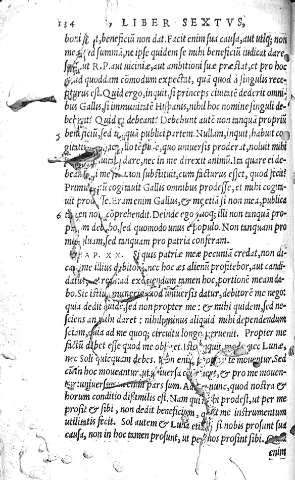 134 LIBER SEXTVS,
boni est, beneficiū non dat. Facit enim sua causa, aut utiq; non
mea ad summā, ne ipse quidem se mihi beneficiū iudicat dare
aut R.P. aut uiciniæ, aut ambitioni suæ præstat, et pro hoc
ad quoddam cōmodum expectat, quā quod à singulis rece-
pturus est. Quid ergo, inquit, si princeps ciuitatē dederit omni-
bus Gallis, si immunitatē Hispanis, nihil hoc nomine singuli de-
bebunt? Quid ni debeant? Debebunt autē non tanquā propriū
beneficiū, sed tanquā publici partem. Nullam, inquit, habuit co-
gitationem illo tēpore, quo uniuersis proderat, noluit mihi
dare, nec in me direxit animū. In quare ei de-
beam substituit, cum facturus esset, quod fecit?
Primum cogitauit Gallis omnibus prodesse, et mihi cogita-
uit prodesse. Eram enim Gallus, & me, etiā si non mea, publica
non comprehendit. Deinde ego quoq; illi non tanquā pro-
prium debebo, sed quomodo unus è populo. Non tanquam pro
me soluam, sed tanquam pro patria conferam.
CAP. XX. Si quis patriæ meæ pecuniā credat, non di-
cam me illius debitorē, nec hoc æs alienū profitebor, aut candi-
datus, ad exoluendum tamen hoc, portionē meam da-
bo. Sic istius quod uniuersis datur, debitorē me nego:
quia dedit quidē, sed non propter me: et mihi quidem, sed ne-
sciens an mihi daret: nihilominus aliquid mihi dependendum
sciam, quia ad me quoq; circuitu longo peruenit. Propter me
factū debet esse quod me obliget. Isto modo, nec Lunæ,
nec Soli quicquam debes. Non enim propter te mouentur. Sed
cū in hoc moueantur, ut uniuersa et pro me mouen-
tur: uniuersorum enim pars sum. Adde nunc, quod nostra &
horum conditio dissimilis est. Nam qui mihi prodest, ut per me
prosit & sibi, non dedit beneficium, quia me instrumentum
utilitatis fecit. Sol autem & Luna etiam si nobis prosunt sua
causa, non in hoc tamen prosunt, ut per nos prosint sibi.
enim